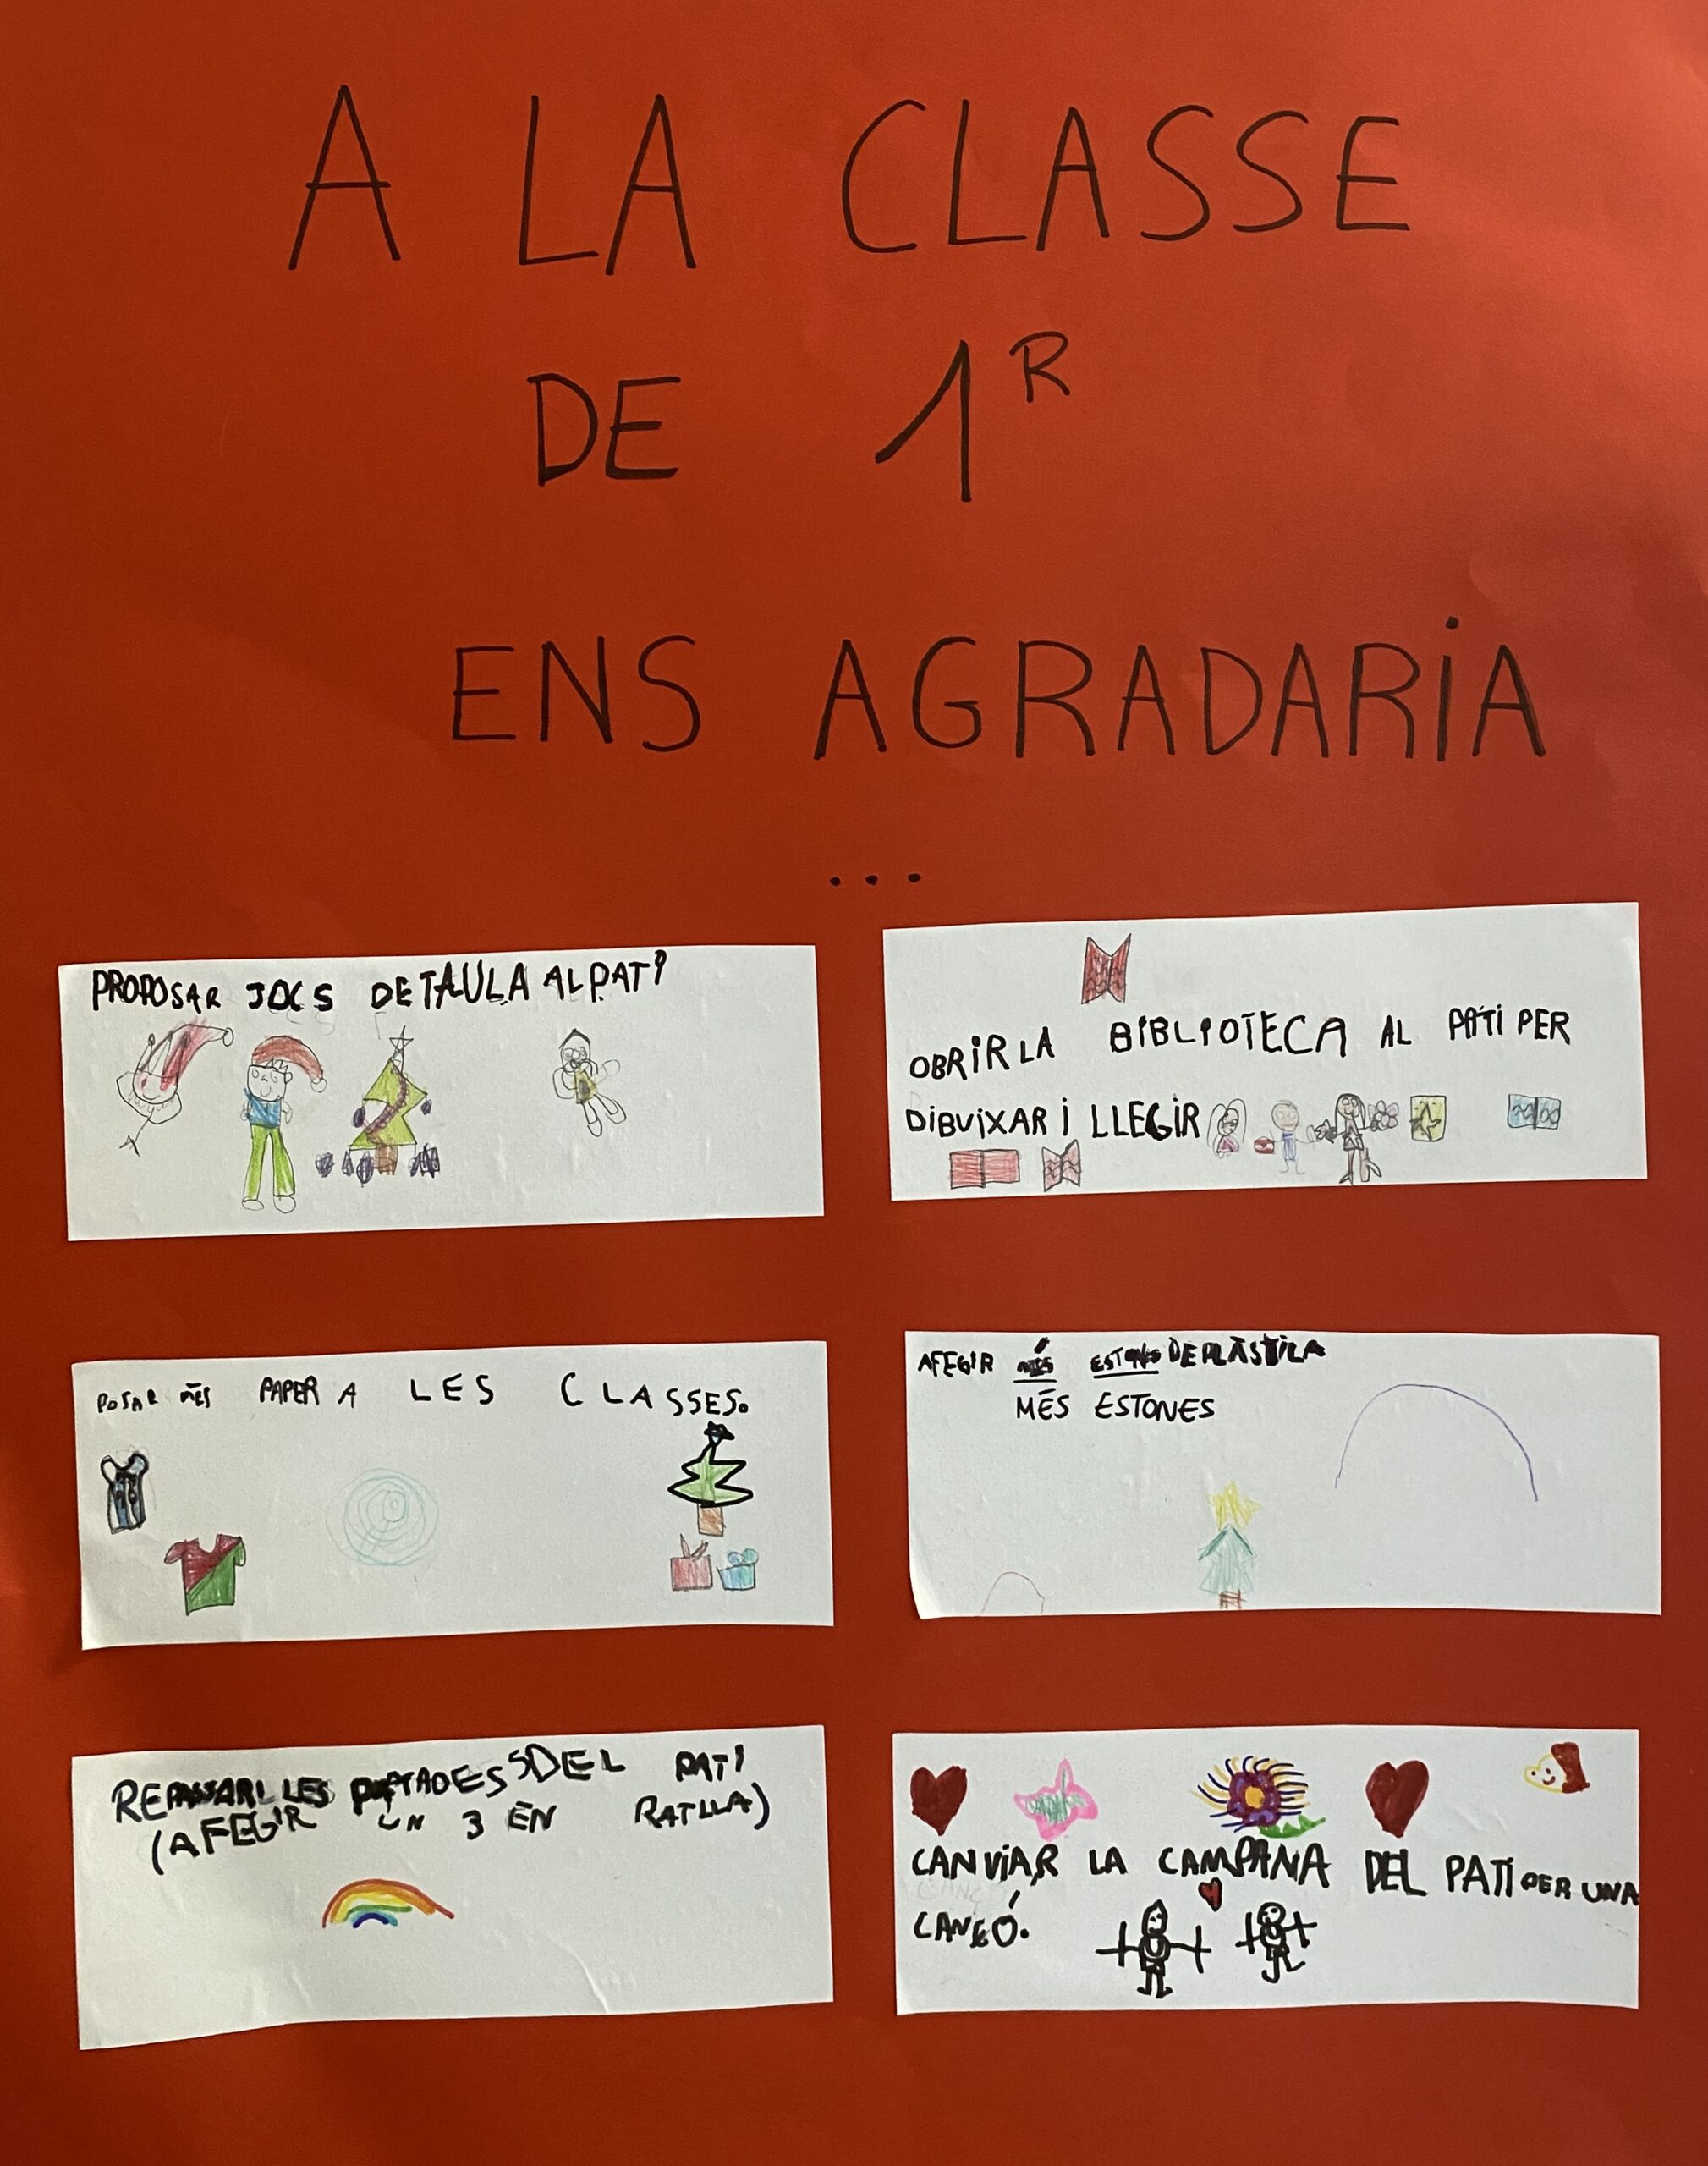 A LA CLASSE
DE 1R
ENS AGRADARIA
...
PROPOSAR JOCS DE TAULA AL PATI
OBRIR LA BIBLIOTECA AL PATI PER
DIBUIXAR I LLEGIR
POSAR MÉS PAPER A LES CLASSES.
AFEGIR MÉS ESTONES DE PLÀSTICA
MÉS ESTONES
LES DEL PATI
(AFEGIR UN 3 EN RATLLA)
CANVIAR LA CAMPANA DEL PATI PER UNA
CANÇÓ.